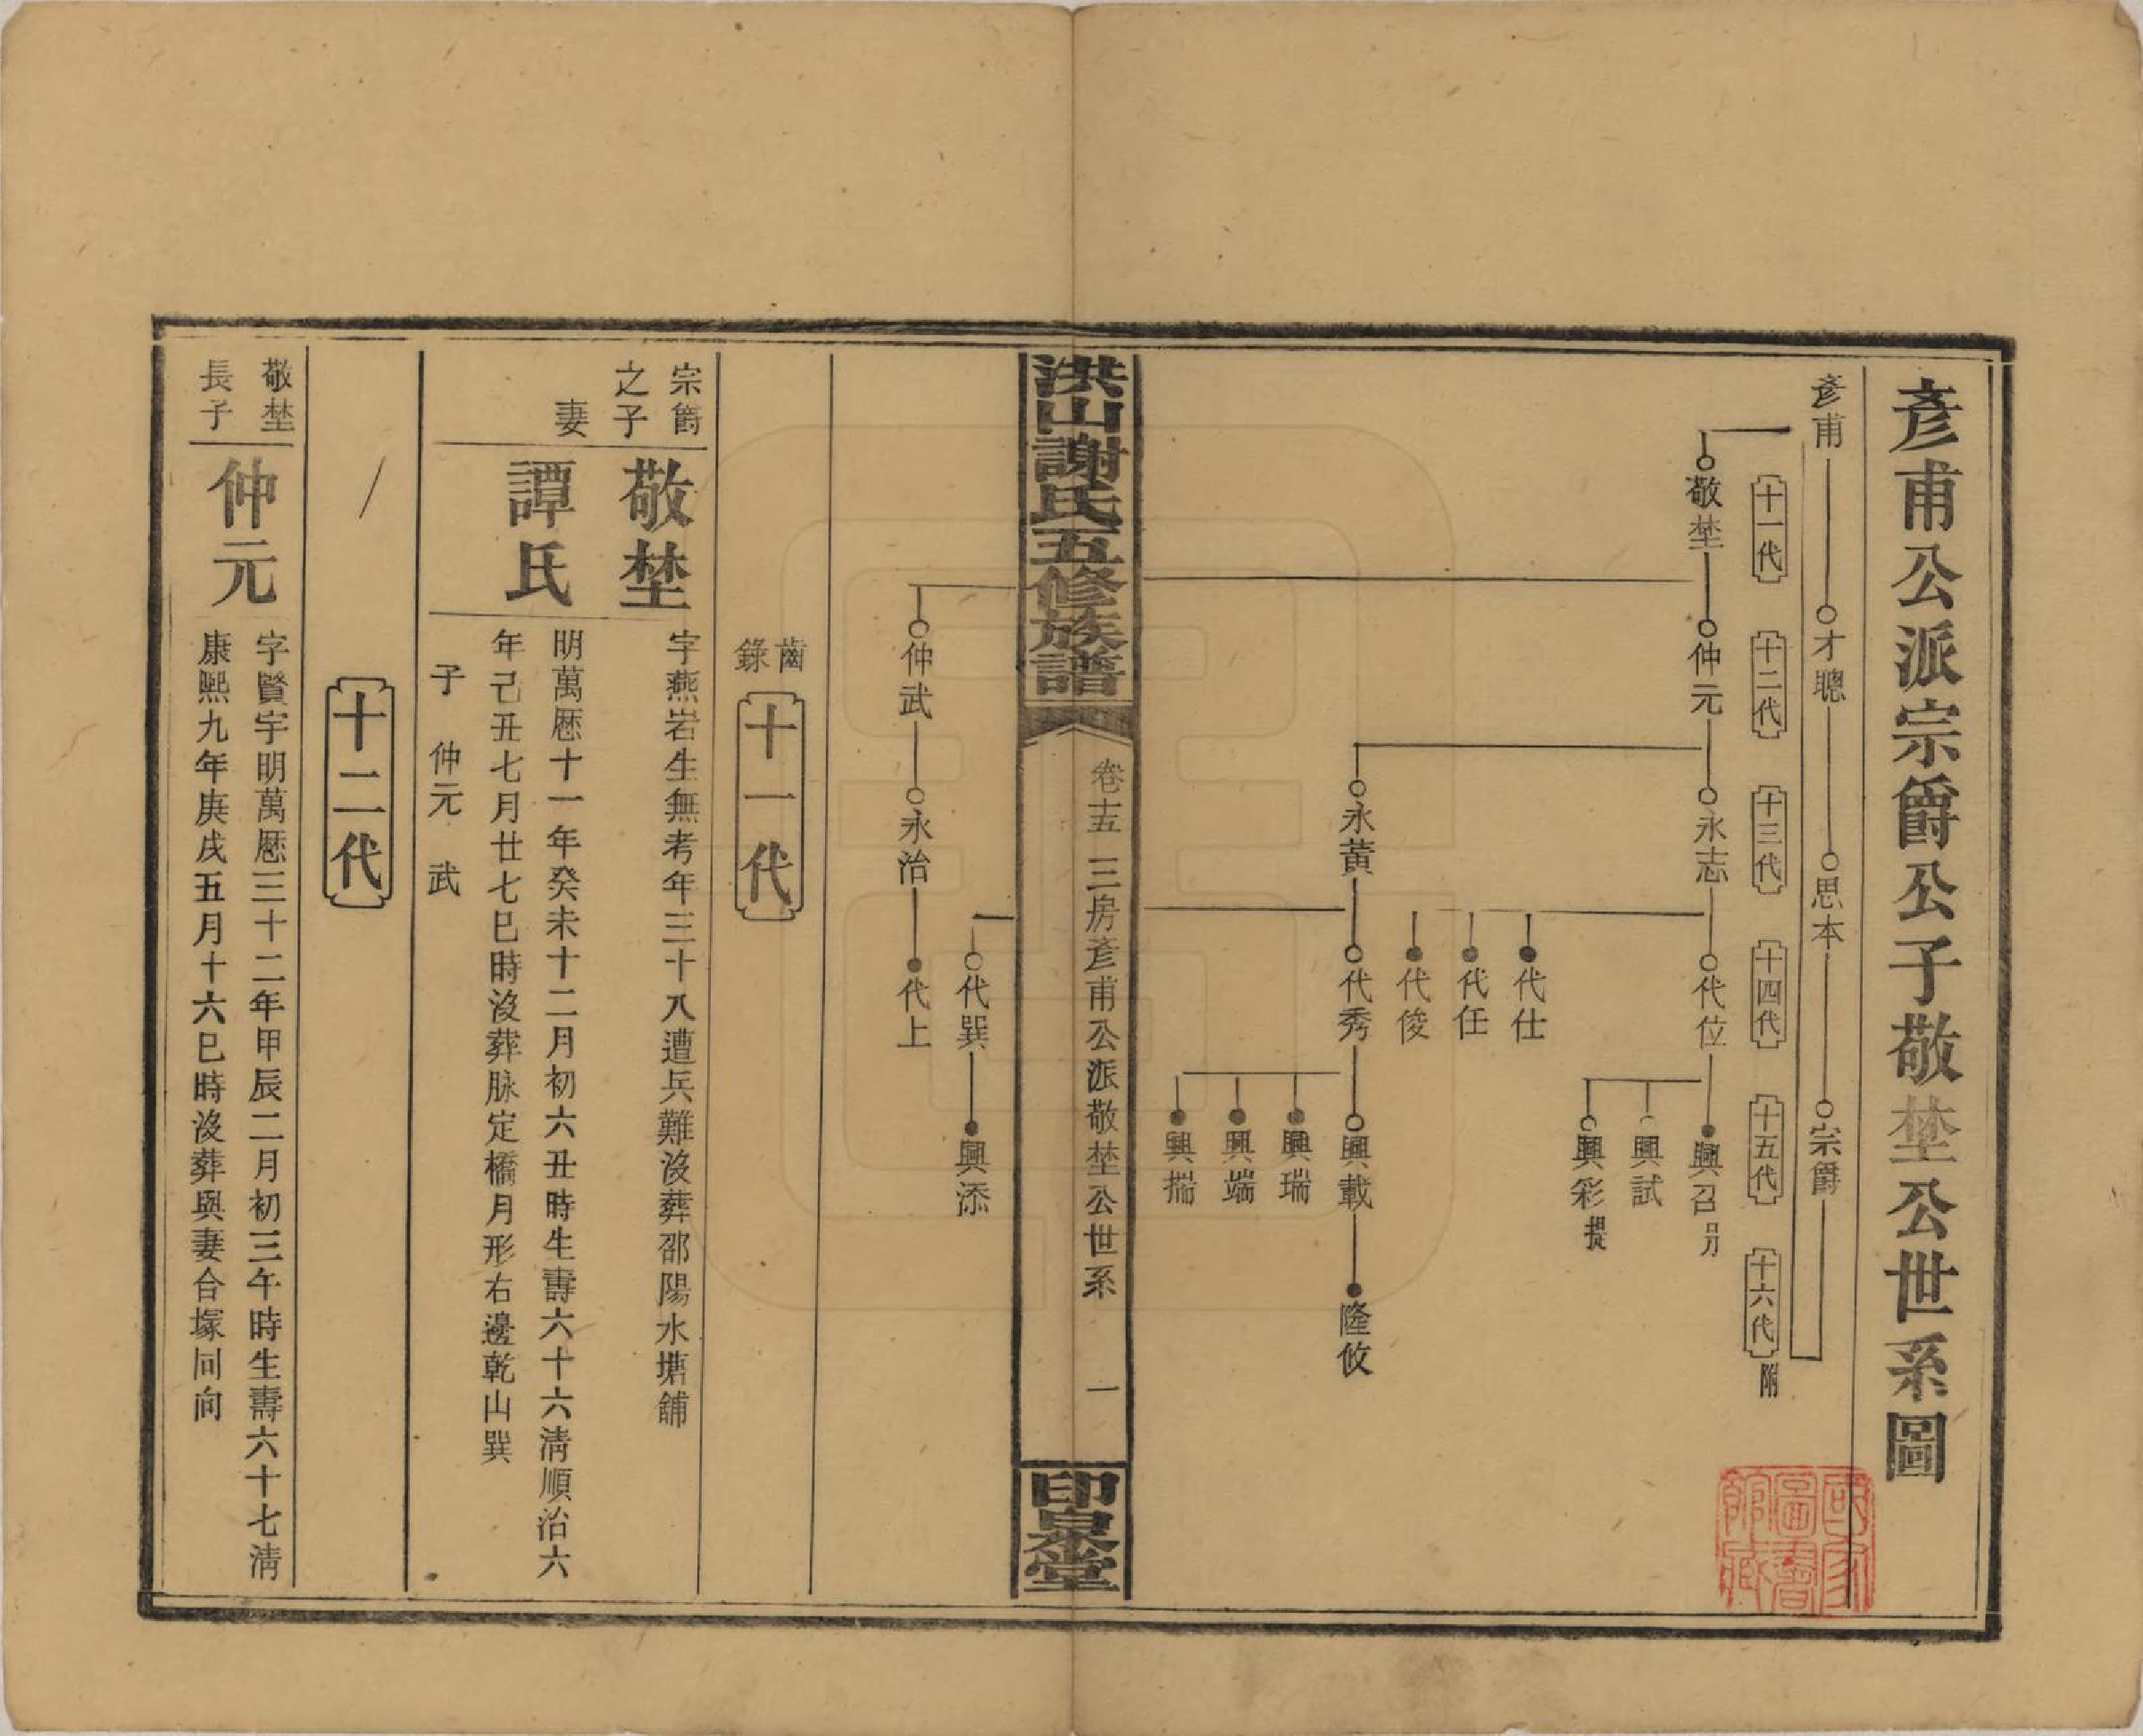 彥甫公派宗爵公子敬埜公世系圖
彥甫 才聰 思本 宗爵
十一代 十二代 十三代 十四代 十五代 十六代 附
敬埜 仲元 永志 代位 興召 興試 興彩
代仕
代任
代俊
永黃 代秀 興載 隆攸
興瑞
興端
興揣
洪山謝氏五修族譜
卷十五 三房彥甫公派敬埜公世系 一
印泉堂
代巽 興添
仲武 永治 代上
齒錄 十一代
宗爵之子 敬埜 字燕岩生無考年三十八遭兵難沒葬邵陽水塘舖
妻 譚氏 明萬厯十一年癸未十二月初六丑時生壽六十六清順治六
年己丑七月廿七巳時沒葬脉定橋月形右邊乾山巽
子 仲元 武
十二代
敬埜長子 仲元 字賢宇明萬厯三十二年甲辰二月初三午時生壽六十七清
康熙九年庚戌五月十六巳時沒葬與妻合塚同向
國家圖書館藏